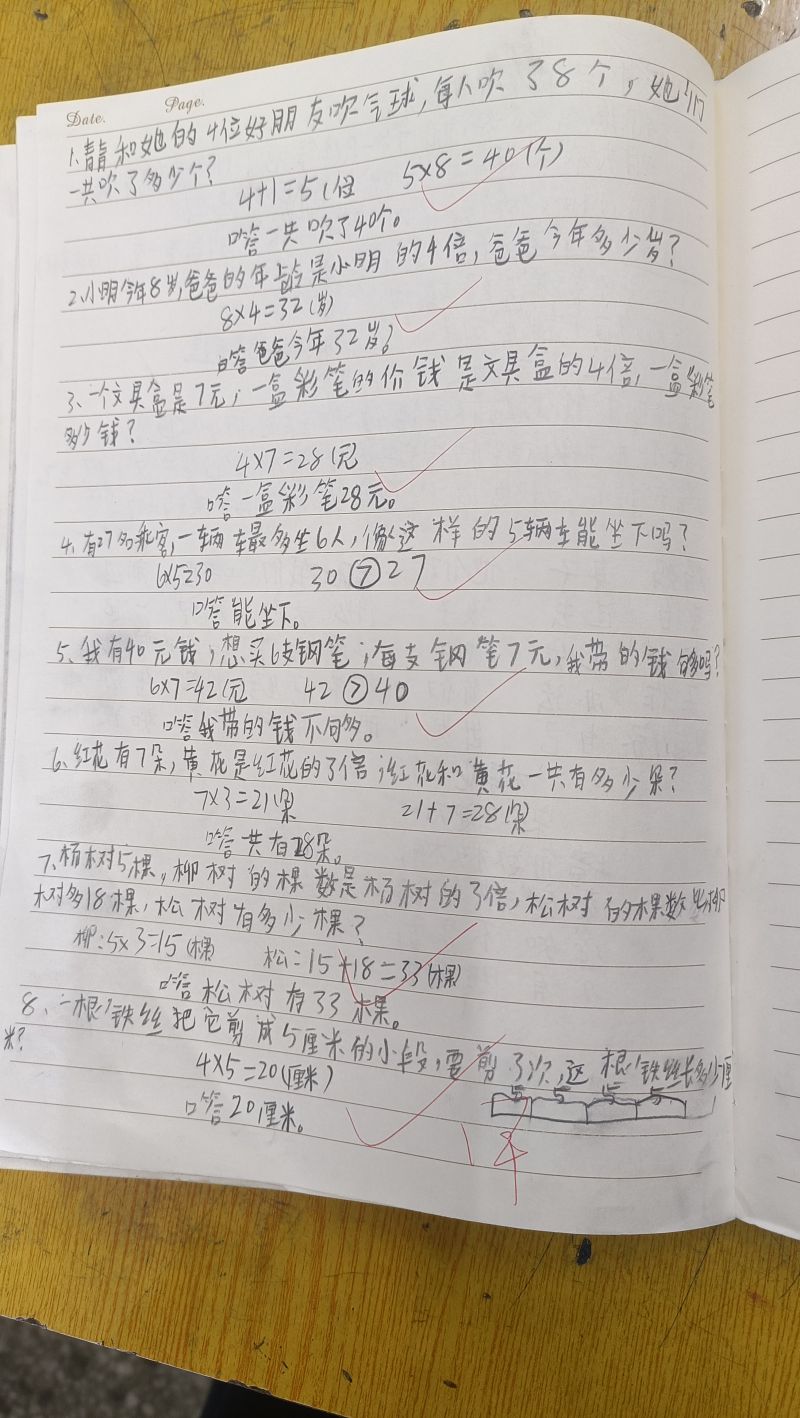 Date.
Page.
1.青青和她的4位好朋友吹气球,每人吹了8个,她们
一共吹了多少个?
4+1=5(位 5×8=40(个)
口答一共吹了40个。
2.小明今年8岁,爸爸的年龄是小明的4倍,爸爸今年多少岁?
8×4=32(岁)
口答爸爸今年32岁。
3、一个文具盒是7元,一盒彩笔的价钱是文具盒的4倍,一盒彩笔
多少钱?
4×7=28(元
口答一盒彩笔28元。
4、有27名乘客,一辆车最多坐6人,像这样的5辆车能坐下吗?
6×5=30 30>27
口答能坐下。
5、我有40元钱,想买6支钢笔,每支钢笔7元,我带的钱够吗?
6×7=42(元 42>40
口答我带的钱不够。
6、红花有7朵,黄花是红花的3倍,红花和黄花一共有多少朵?
7×3=21(朵 21+7=28(朵
口答共有28朵。
7、杨树5棵,柳树的棵数是杨树的3倍,松树的棵数比柳
树多18棵,松树有多少棵?
柳:5×3=15(棵) 松:15+18=33(棵)
口答松树有33棵。
8、一根铁丝把它剪成5厘米的小段,要剪3次,这根铁丝长多少厘
米?
4×5=20(厘米)
5 5 5 5
口答20厘米。
14